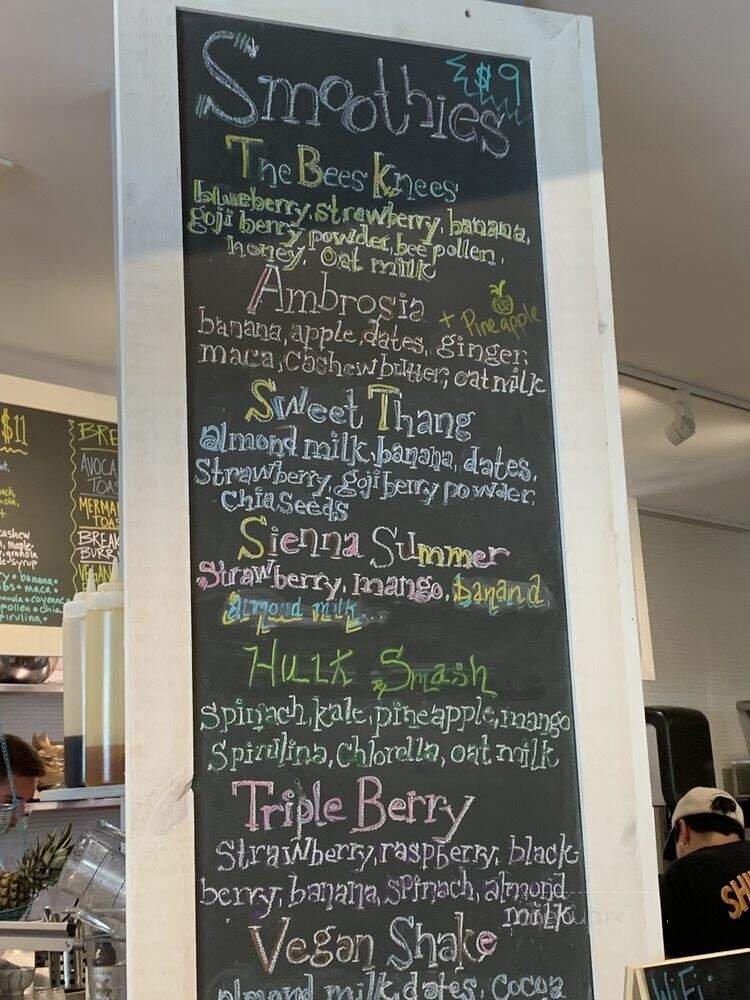 $9
Smoothies
The Bees Knees
blueberry, strawberry, banana,
goji berry powder, bee pollen,
honey, oat milk
Ambrosia + Pineapple
banana, apple, dates, ginger,
maca, cashew butter, oat milk
Sweet Thang
almond milk, banana, dates,
strawberry, goji berry powder,
chia seeds
Sienna Summer
strawberry, mango, banana
almond milk
Hulk Smash
spinach, kale, pineapple, mango
spirulina, chlorella, oat milk
Triple Berry
strawberry, raspberry, black
berry, banana, spinach, almond
milk
Vegan Shake
almond milk, dates, cocoa
$11
BRE
AVOCA
TOAS
MERMA
TOAS
BREAK
BURR
VEGAN
cashew
maple
granola
syrup
banana
maca
cayenne
pollen chia
pirulina
SH
WiFi: